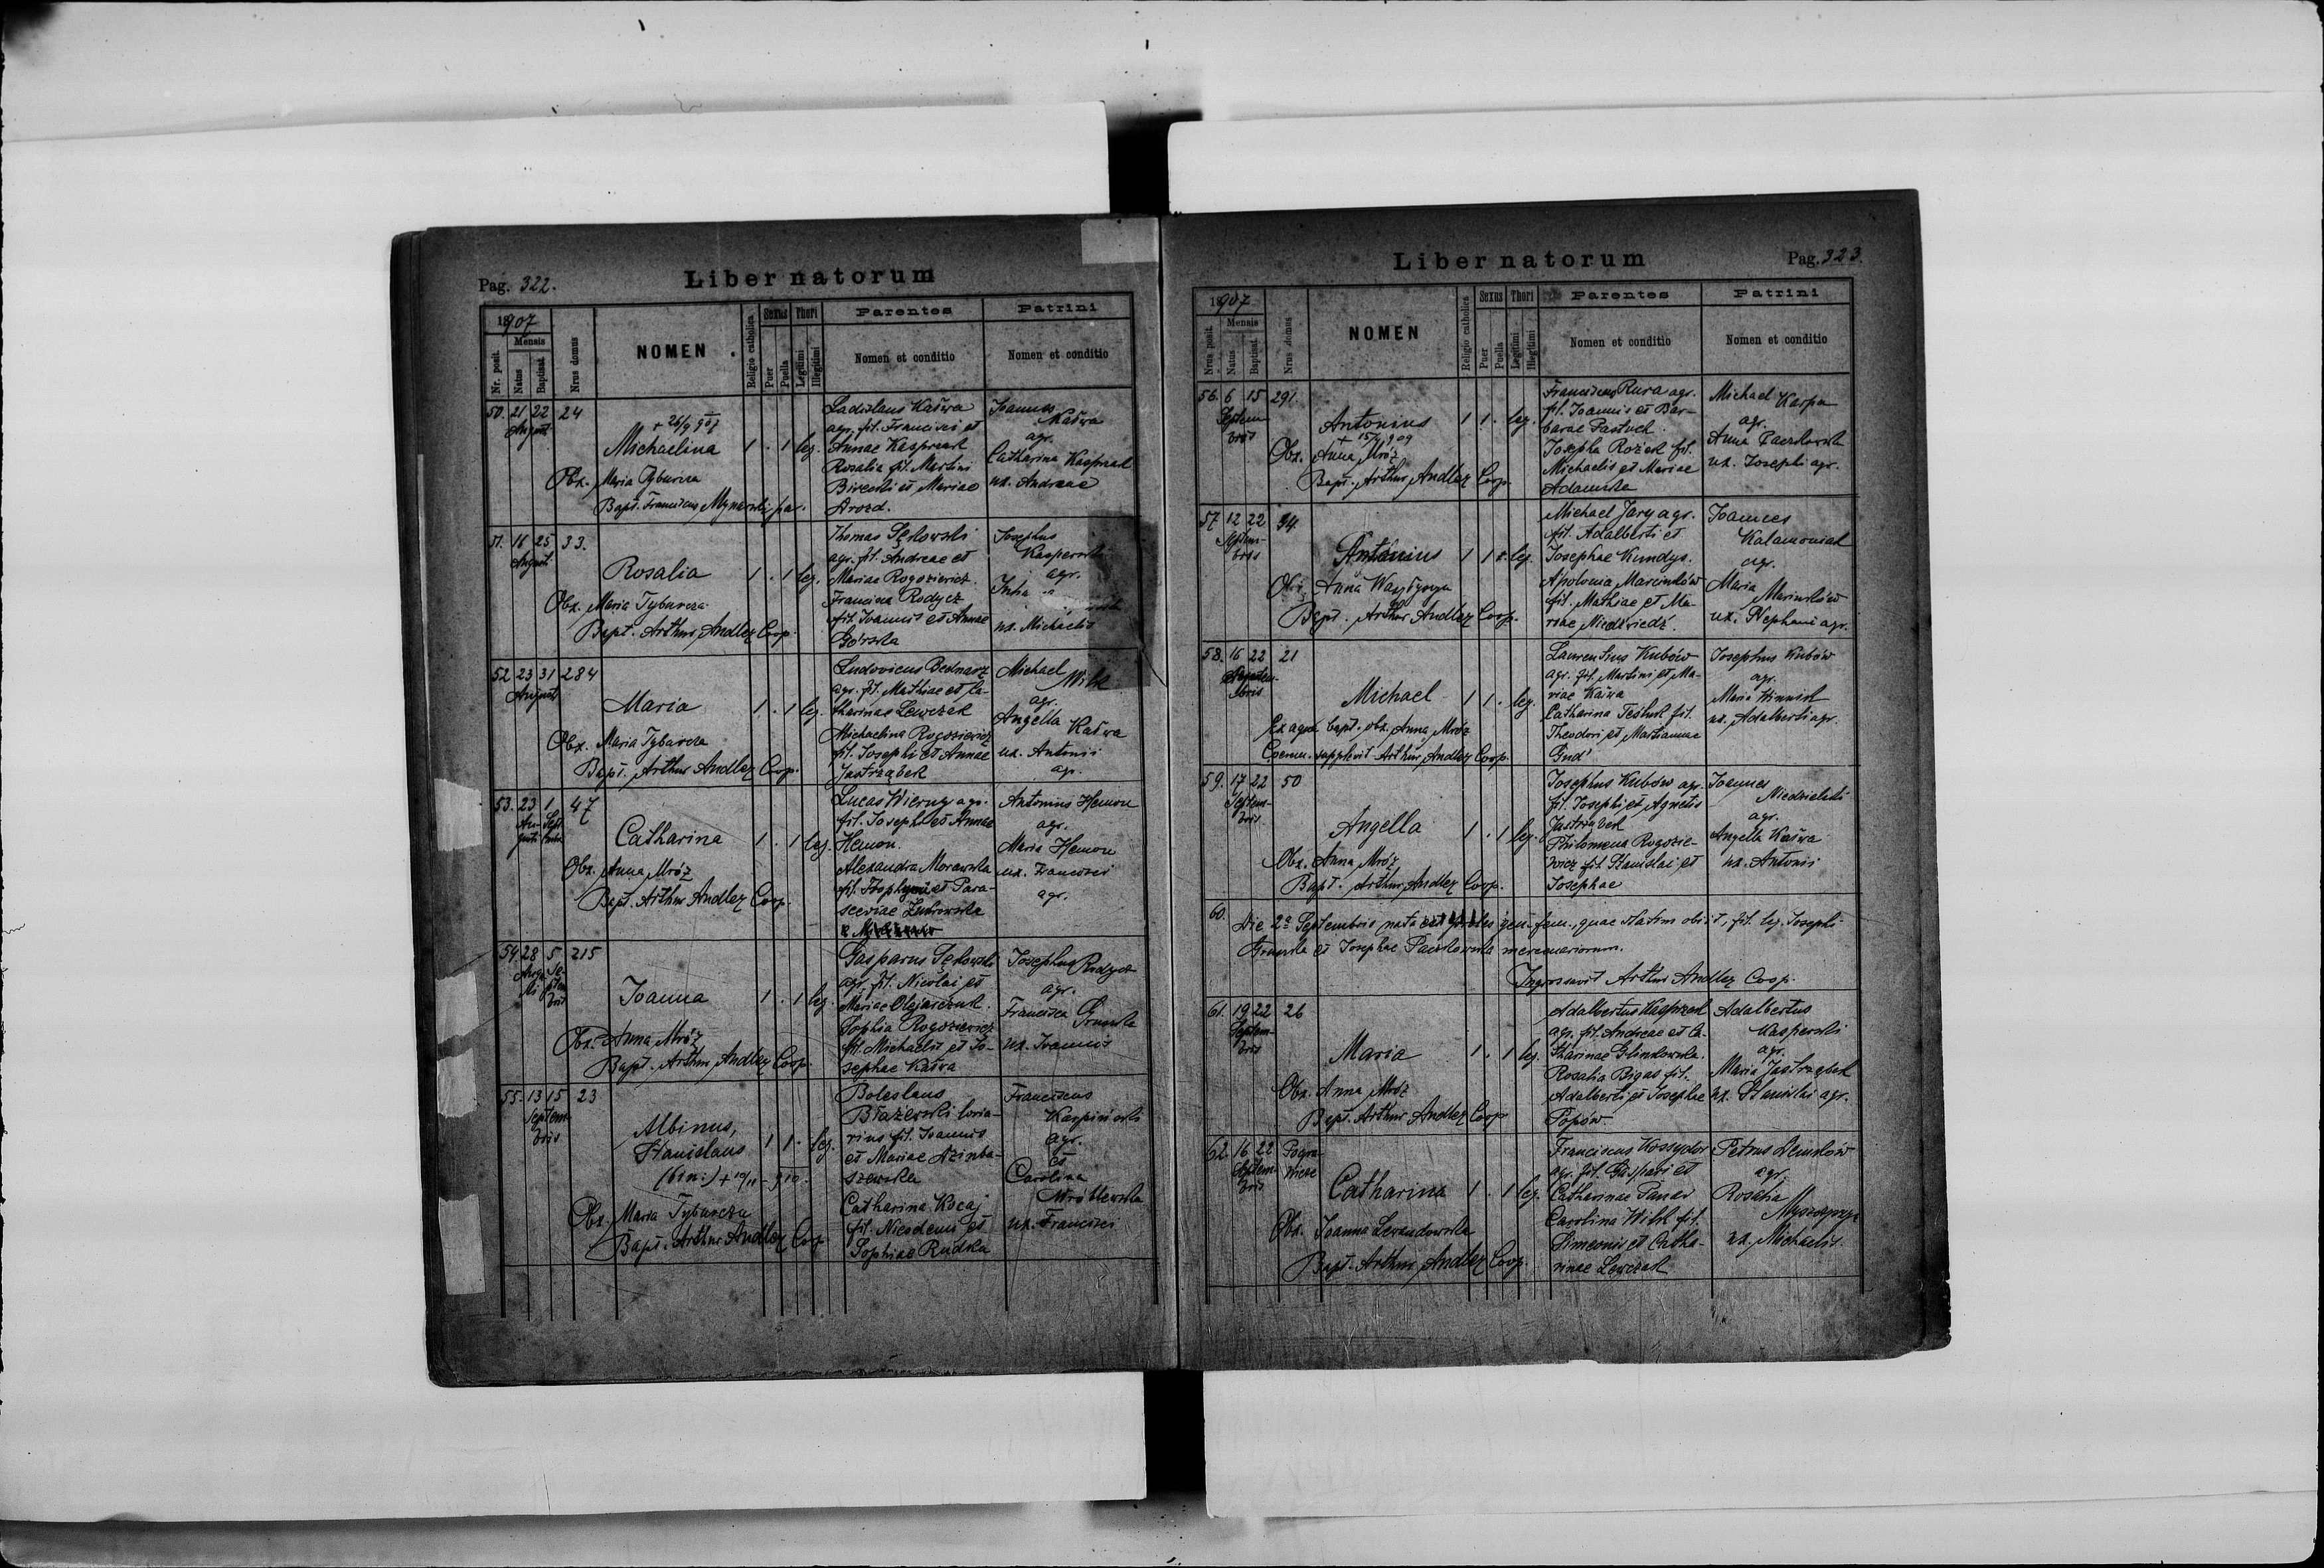 Pag. 322.
Liber natorum
1907
Nr. posit.
Mensis
Natus
Baptisat.
Nrus domus
NOMEN
Religio catholica
Sexus
Puer
Puella
Thori
Legitimi
Illegitimi
Parentes
Nomen et conditio
Patrini
Nomen et conditio
50. 21 22 24
August
Michaelina
1 . 1 leg.
Obx. Maria Tyburcza
Bapt. Franciscus par.
Ladislaus Kaśwa
agr. fil. Francisci et
Annae Kasprzak
Rosalia fil. Martini
et Mariae
Drozd.
Joannes
Kaśwa
agr.
Catharina Kasprzak
ux. Andreae
51. 16 25 33.
August
Rosalia
1 . 1 leg.
Obx. Maria Tyburcza
Bapt. Arthur Andlez Coop.
Thomas Sękowski
agr. fil. Andreae et
Mariae Rogoziewicz.
Francisca Rodycz
fil. Joannis et Annae
Górska
Josephus
Kasperski
agr.
ux. Michaelis
52. 23 31 284
August
Maria
1 . 1 leg.
Obx. Maria Tyburcza
Bapt. Arthur Andlez Coop.
Ludovicus Bednarz
agr. fil. Mathiae et Ca-
tharinae Lewczak
Michaelina Rogoziewicz
fil. Josephi et Annae
Jastrząbek
Michael
Wilk
agr.
Angella Kaśwa
ux. Antonii
agr.
53. 23 1 47
Au- Sept.
gusti
Catharina
1 . 1 leg.
Obx. Anna Mróz
Bapt. Arthur Andlez Coop.
Lucas Wierny agr.
fil. Josephi et Annae
Hemon.
Alexandra Morawska
fil. et Para-
sceviae Żukrowska
Antonius Hemon
agr.
Maria Hemon
ux. Francisci
agr.
54. 28 5 215
Augu- Se-
sti ptem-
bris
Joanna
1 . 1 leg.
Obx. Anna Mróz
Bapt. Arthur Andlez Coop.
Gasparus Sękowski
agr. fil. Nicolai et
Mariae Olejarczuk.
Sophia Rogoziewicz
fil. Michaelis et Jo-
sephae Kaśwa
Josephus Rudycz
agr.
Francisca
Grunska
ux. Joannis
55. 13 15 23
Septem-
bris
Albinus,
Stanislaus 1 1 . leg.
(bin:) + 10/11 - 910.
Obx. Maria Tyburcza
Bapt. Arthur Andlez Coop.
Boleslaus
Błażewski loria-
rius fil. Joannis
et Mariae Dzimba-
szewska
Catharina Kocaj
fil. Nicodemi et
Sophiae Rudka
Franciscus
Kaspiński
agr.
et
Carolina
Wróblewska
ux. Francisci
Liber natorum
Pag. 323.
1907
Nrus posit.
Mensis
Natus
Baptisat.
Nrus domus
NOMEN
Religio catholica
Sexus
Puer
Puella
Thori
Legitimi
Illegitimi
Parentes
Nomen et conditio
Patrini
Nomen et conditio
56. 6 15 291.
Septem-
bris
Antonius 1 1 . leg.
Obx. Anna Mróz
Bapt. Arthur Andlez Coop.
Franciscus Rura agr.
fil. Joannis et Bar-
barae Pastuch
Josepha Rożek fil.
Michaelis et Mariae
Adamska
Michael Karpa
agr.
Anna Paczkowska
ux. Josephi agr.
57. 12 22 34
Septem-
bris
Antonius 1 1 . leg.
Anna
Bapt. Arthur Andlez Coop.
Michael Jary agr.
fil. Adalberti et
Josephae Kundys.
Apolonia Marcinków
fil. Mathiae et Ma-
riae Niedźwiedź.
Joannes
Kalamoniak
agr.
Maria
ux. Stephani agr.
58. 16 22 21
Septem-
bris
Michael 1 1 . leg.
Ex aqua bapt. obx. Anna Mróz
Caerem. supplevit Arthur Andlez Coop.
Laurentius Kubów
agr. fil. Martini et Ma-
riae Kaśwa
Catharina Teśluk fil.
Theodori et Martianae
Gud'
Josephus Kubów
agr.
Maria Winnik
ux. Adalberti agr.
59. 17 22 50
Septem-
bris
Angella 1 . 1 leg.
Obx. Anna Mróz
Bapt. Arthur Andlez Coop.
Josephus Kubów agr.
fil. Josephi et Agnetis
Jastrząbek
Philomena Rogozie-
wicz fil. Stanislai et
Josephae
Joannes
Niedzielski
agr.
Angella Kaśwa
ux. Antonii
60. Die 2a Septembris nata est proles gen. fem., quae statim obiit, fil. leg. Josephi
Grunska et Josephae Paczkowska mercenariorum.
Ingrossavit Arthur Andlez Coop.
61. 19 22 26
Septem-
bris
Maria 1 . 1 leg.
Obx. Anna Mróz
Bapt. Arthur Andlez Coop.
Adalbertus Kasprzak
agr. fil. Andreae et Ca-
tharinae Glinkowska.
Rosalia Bigas fil.
Adalberti et Josephae
Popów
Adalbertus
Kasperski
agr.
Maria Jastrząbek
ux. Stanislai agr.
62. 16 22 Pogra-
Septem- nicze
bris
Catharina 1 . 1 leg.
Obx. Joanna Lewandowska
Bapt. Arthur Andlez Coop.
Franciscus Kossydor
agr. fil. Gaspari et
Catharinae Panas
Carolina Wilk fil.
Simeonis et Catha-
rinae Lewczak
Petrus Demków
agr.
Rosalia
ux. Michaelis